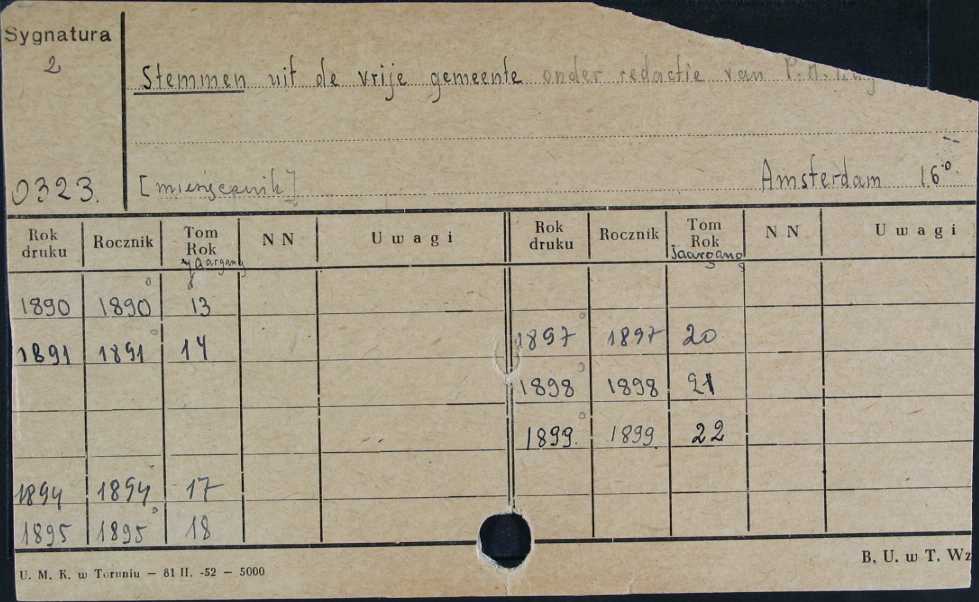 Sygnatura
2
Stemmen uit de vrije gemeente onder redactie van P. H.
0323.
[miesięcznik]
Amsterdam 16°.
Rok druku Rocznik Tom Rok Jaargang NN Uwagi Rok druku Rocznik Tom Rok Jaargang NN Uwagi
1890 1890 13
1897 1897 20
1891 1891 14
1898 1898 21
1899. 1899. 22
1894 1894 17
1895 1895 18
U. M. K. w Toruniu — 81 II. -52 — 5000
B. U. w T. Wz